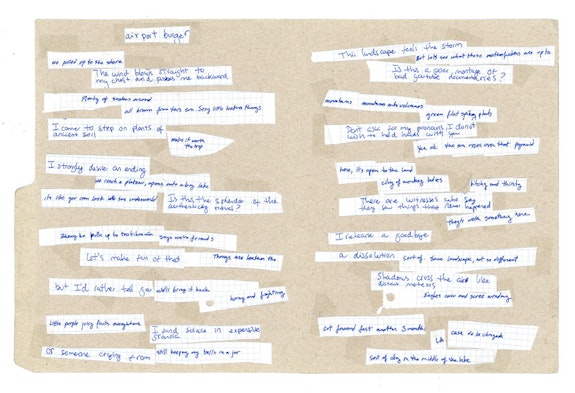 airport burger
we pulled up to the storm
The wind blows straight to
my chest and pushes me backward
Plenty of around
all brown from this sun. Sexy little leather things
I came to step on plants of
ancient soil
make it worth
the trip
I strongly desire an ending
we reach a plateau, opens onto a big lake
its like you can look into the underworld
Is this the splendor of the
authenticity ritual?
pulls up to says we're friends
Let's make fun of that
Things are
but I'd rather tell you
we'll bring it back
horny and fighting
Little people joy farts everywhere
I find solace in expensive
Of someone crying from
still keeping my balls in a jar
This landscape feels the storm
But lets see what these motherfuckers are up to
Is this a poor montage of
bad youtube documentaries?
mountains
mountains onto volcanoes
green flat spikey plants
Don't ask for my pronouns, I do not
wish to hold hands with you
the sun rises over that pyramid
here, it's open to the land
city of monkey ladies
bitchy and thirsty
There are witnesses who say
they saw things that never happened
they'll work something here
I release a goodbye
a dissolution
sort of. Same landscape, not so different
Shadows cross the like
distant meteors
Eagles came and were winding
cut forward fast another 3 months
LA
case to be changed
sort of clay in the middle of the lake